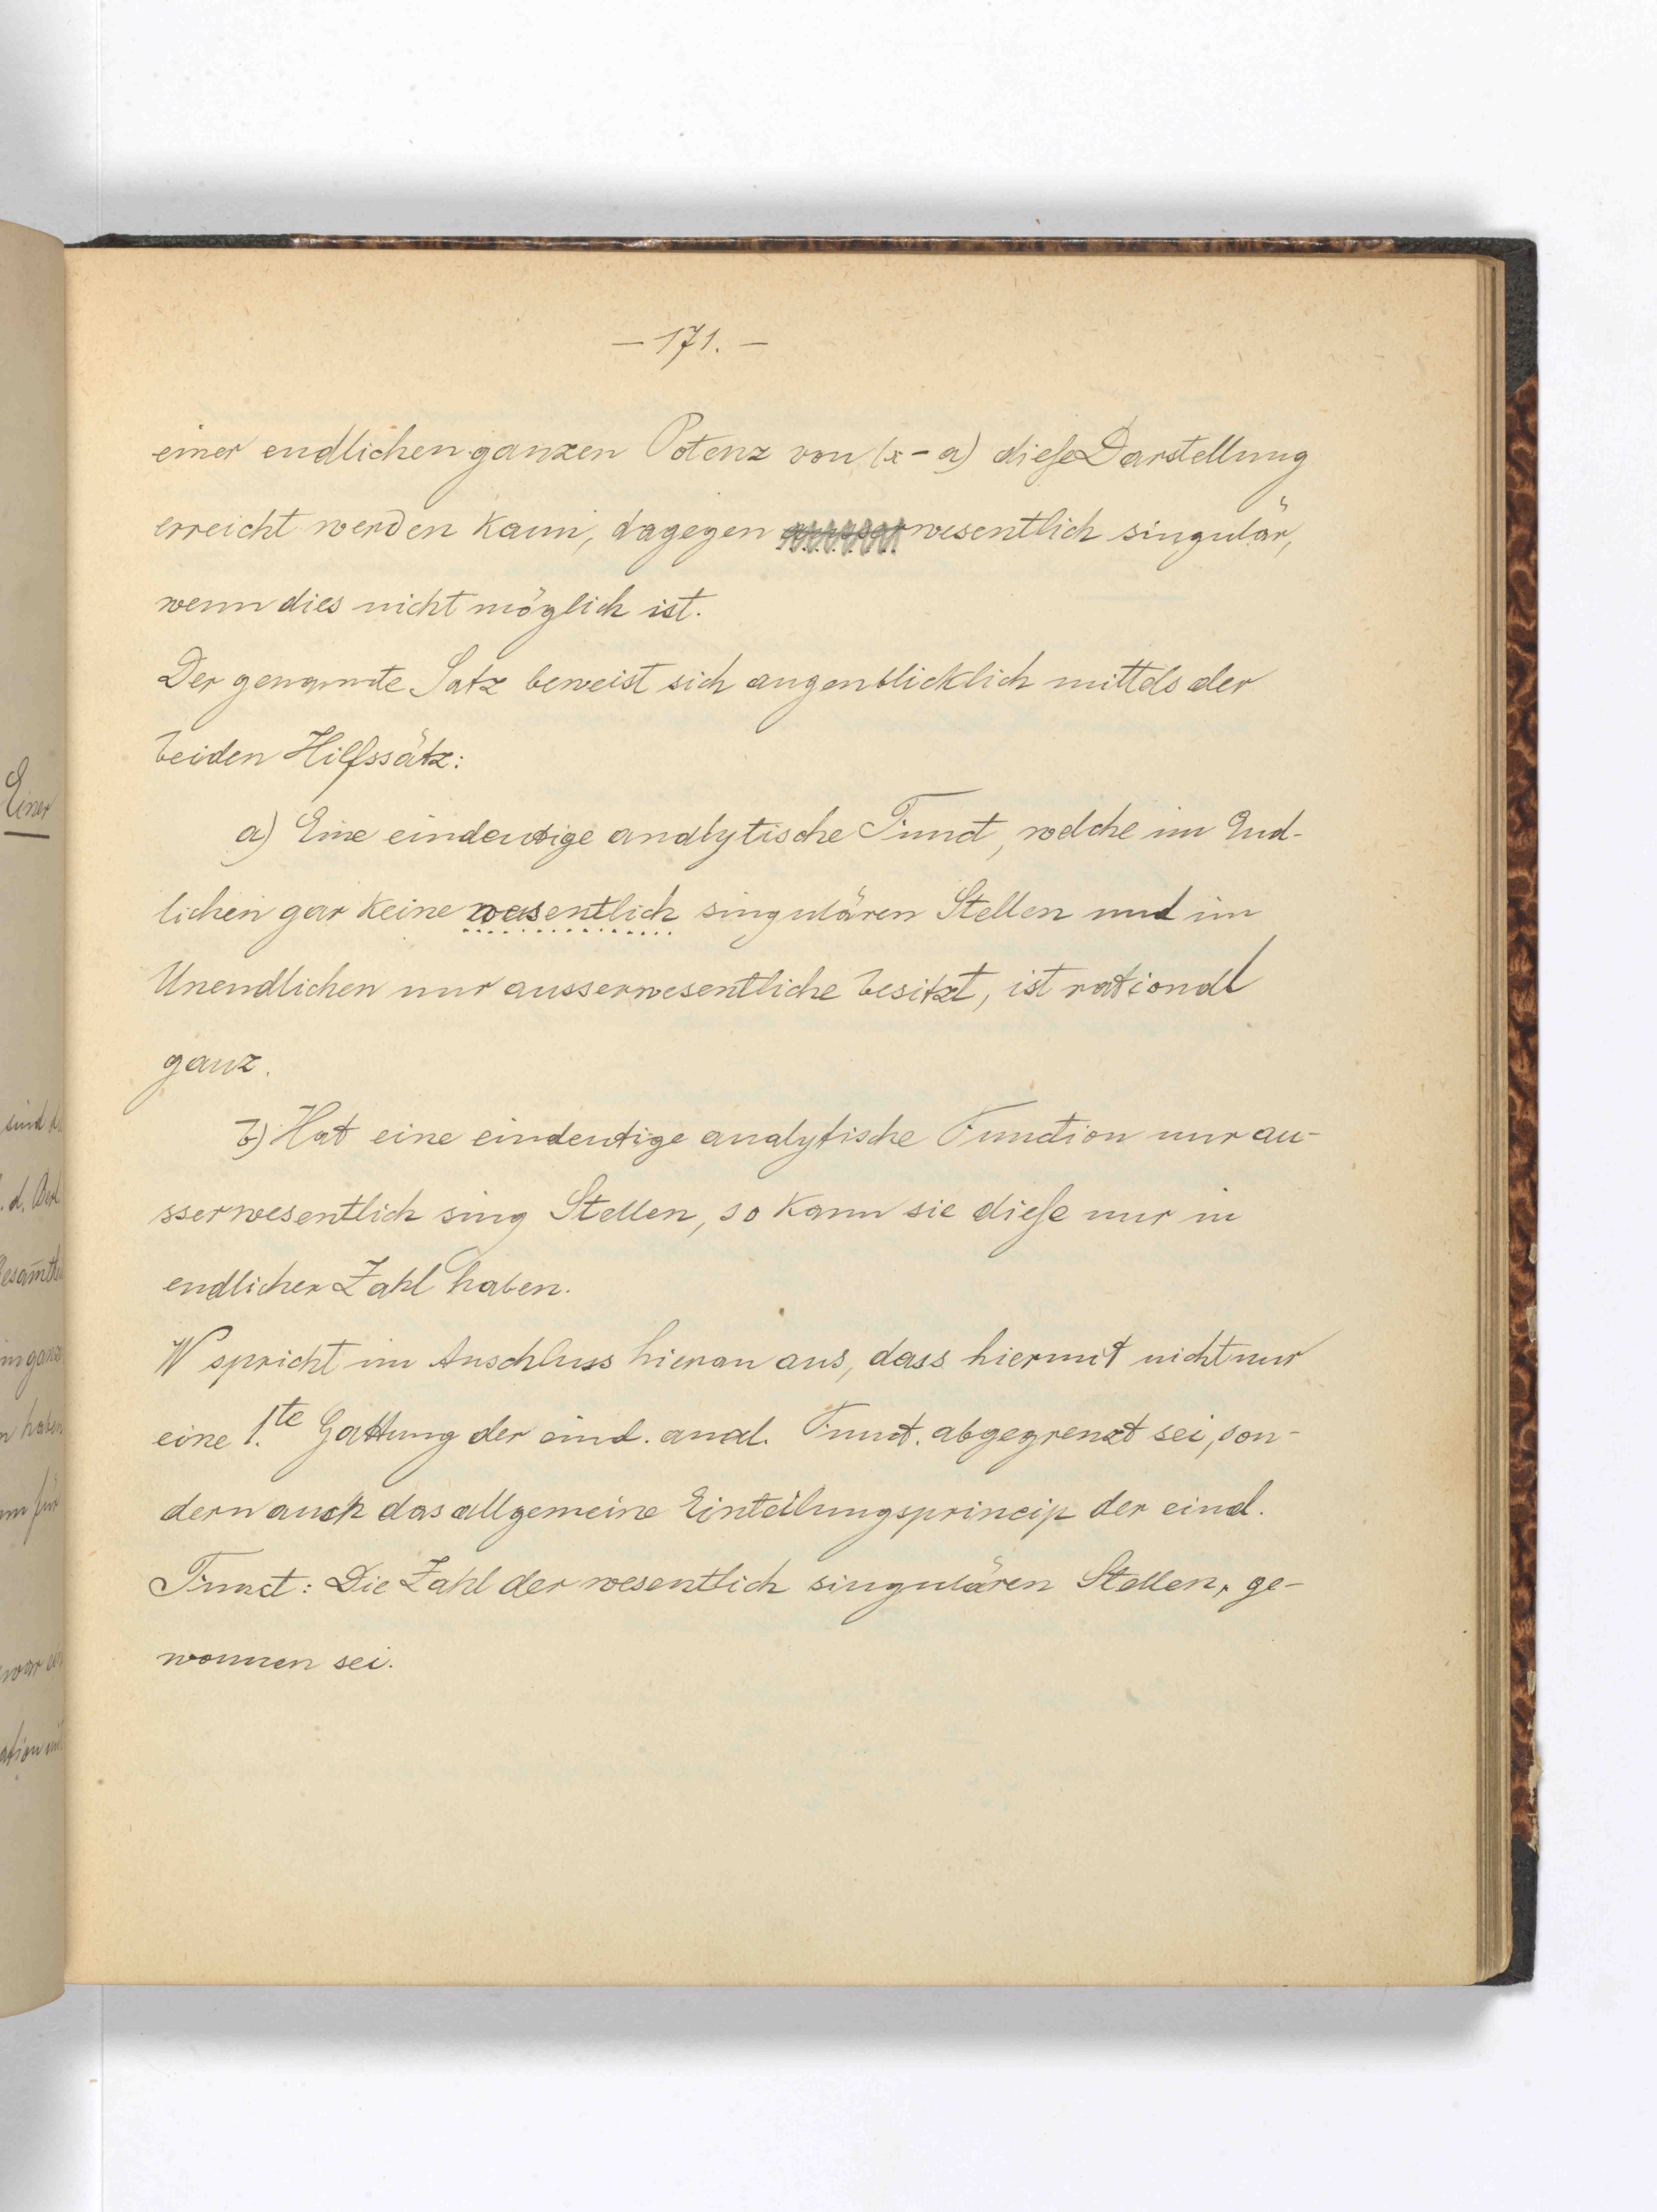 — 171. —
einer endlichen ganzen Potenz von (x - a) diese Darstellung
erreicht werden kann, dagegen wesentlich singulär,
wenn dies nicht möglich ist.
Der genannte Satz beweist sich augenblicklich mittels der
beiden Hilfssätz:
a) Eine eindeutige analytische Funct, welche im End-
lichen gar keine wesentlich singulären Stellen und im
Unendlichen nur ausserwesentliche besitzt, ist rational
ganz.
b) Hat eine eindeutige analytische Function nur au-
sserwesentlich sing Stellen, so kann sie diese nur in
endlicher Zahl haben.
W spricht im Anschluss hieran aus, dass hiermit nicht nur
eine 1.te Gattung der eind. anal. Funct. abgegrenzt sei, son-
dern auch das allgemeine Einteilungsprincip der eind.
Funct: Die Zahl der wesentlich singulären Stellen, ge-
wonnen sei.
Einer
sind
d.
haben